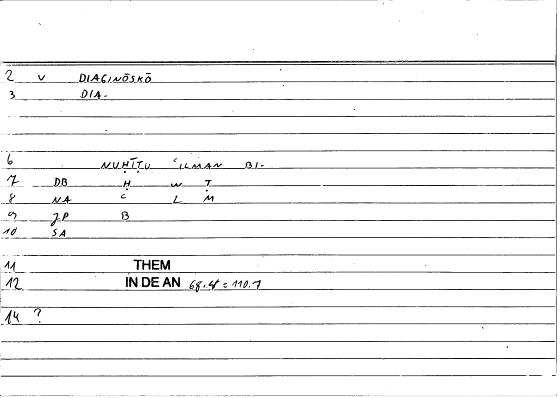 2 v DIAGINŌSKŌ
3 DIA-
6 NUḤĪṬU ʿILMAN BI-
7 DB Ḥ W Ṭ
8 NA ʿ L M
9 JP B
10 SA
11 THEM
12 IN DE AN 68.4 = 110.7
14 ?